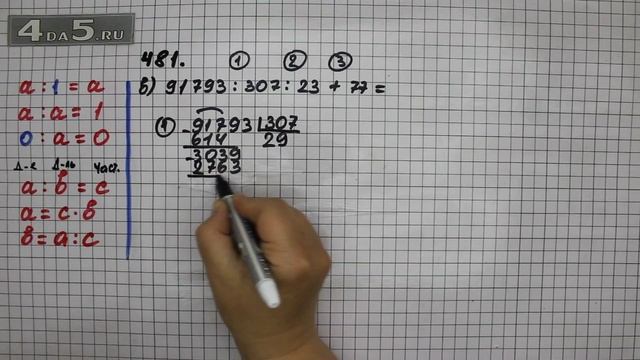 4DA5.RU
481. ① ② ③
в) 91793 : 307 : 23 + 77 =
a : 1 = a
a : a = 1
0 : a = 0
Д-е Д-ль Част.
a : в = c
a = c · в
в = a : c
① 91793 307
- 614 29
- 3039
2763